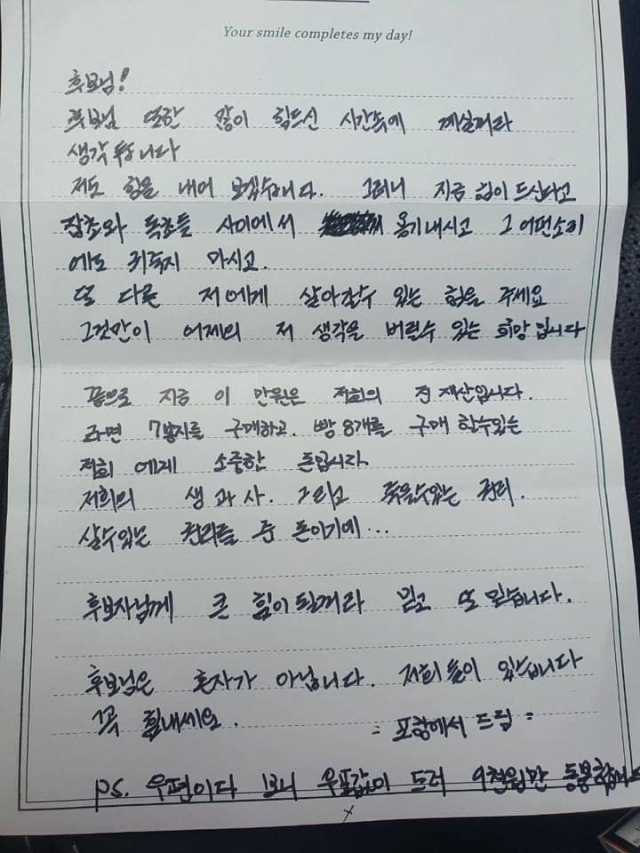 Your smile completes my day!
후보님!
후보님 또한 많이 힘드신 시간속에 계실꺼라
생각 합니다
저도 힘을 내어 보겠습니다. 그러니 지금 힘이 드신다고
잡초와 독초들 사이에서 용기내시고 그 어떤소리
에도 귀죽지 마시고.
또 다른 저에게 살아갈수 있는 힘을 주세요
그것만이 어제의 저 생각을 버릴수 있는 희망입니다
끝으로 지금 이 만원은 저희의 전 재산입니다.
라면 7봉지를 구매하고. 빵 8개를 구매 할수있는
저희 에게 소중한 돈입니다
저희의 생과사. 그리고 죽을수있는 권리.
살수있는 권리를 준 돈이기에...
후보자님께 큰 힘이될꺼라 믿고 또 믿습니다.
후보님은 혼자가 아닙니다. 저희들이 있습니다
꼭 힘내세요.
: 포항에서 드림 :
ps. 우편이다 보니 우표값이 드려 9천원만 동봉합니다